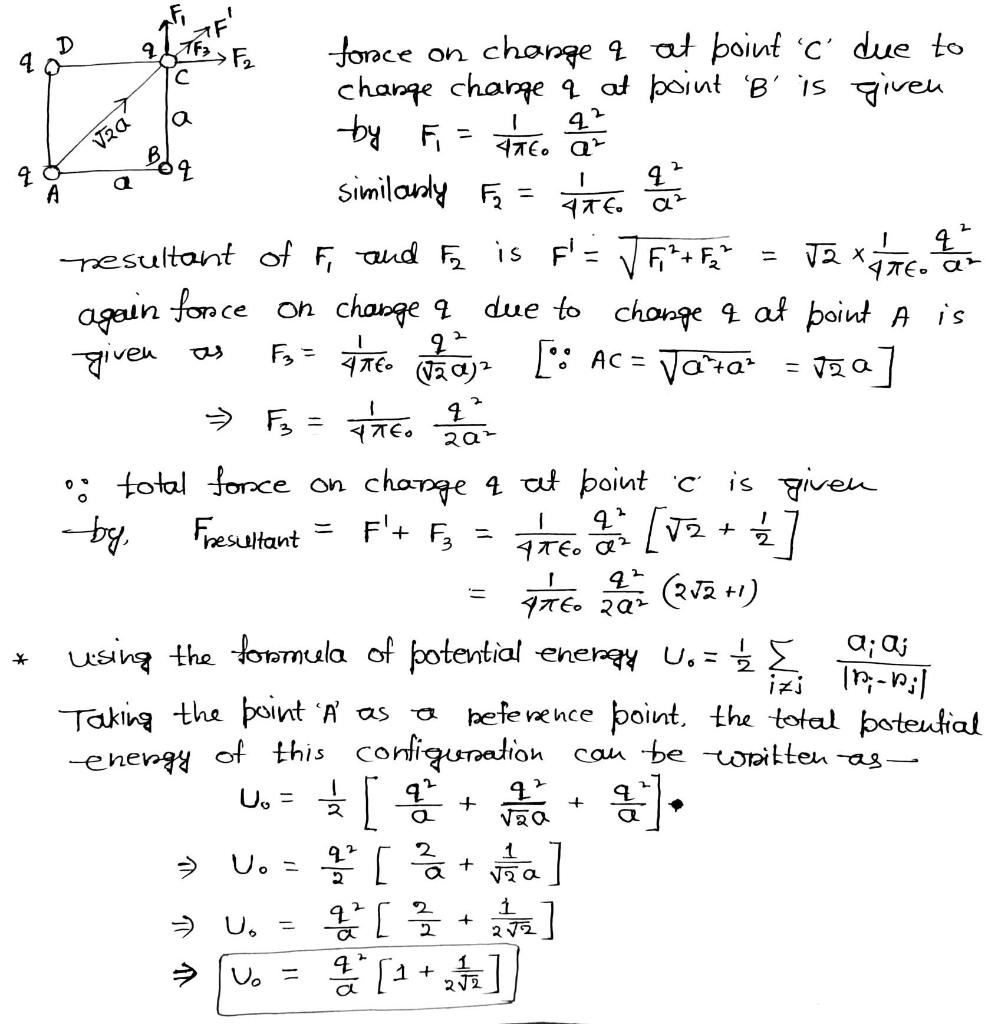 q D q F₁ F' F₃ F₂ C
√2a a
q A a B q
force on charge q at point 'C' due to
charge charge q at point 'B' is given
by F₁ = 1/4πϵ₀ q²/a²
similarly F₂ = 1/4πϵ₀ q²/a²
resultant of F₁ and F₂ is F' = √F₁²+F₂² = √2 × 1/4πϵ₀ q²/a²
again force on charge q due to charge q at point A is
given as F₃ = 1/4πϵ₀ q²/(√2a)² [∵ AC = √a²+a² = √2a]
⇒ F₃ = 1/4πϵ₀ q²/2a²
∵ total force on charge q at point 'C' is given
by, Fresultant = F' + F₃ = 1/4πϵ₀ q²/a² [√2 + 1/2]
= 1/4πϵ₀ q²/2a² (2√2 +1)
* using the formula of potential energy U₀ = 1/2 Σ i≠j aᵢaⱼ/|rᵢ-rⱼ|
Taking the point 'A' as a reference point, the total potential
energy of this configuration can be written as —
U₀ = 1/2 [q²/a + q²/√2a + q²/a].
⇒ U₀ = q²/2 [2/a + 1/√2a]
⇒ U₀ = q²/a [2/2 + 1/2√2]
⇒ U₀ = q²/a [1 + 1/2√2]